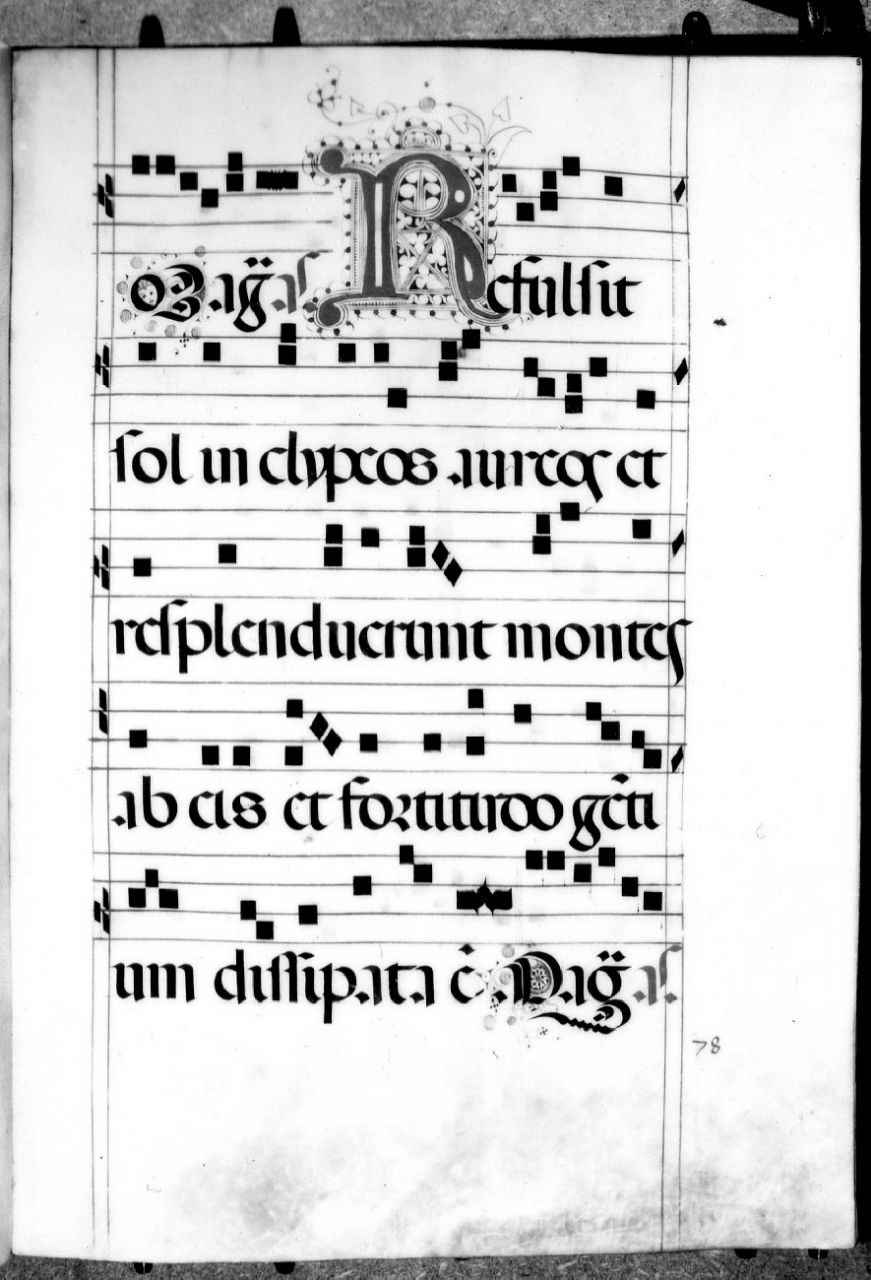 o Mag̃. añ. Refulsit
sol in clypeos aureos et
resplenduerunt montes
ab eis et fortitudo gẽti
um dissipata ẽ. a Mag̃. añ.
78